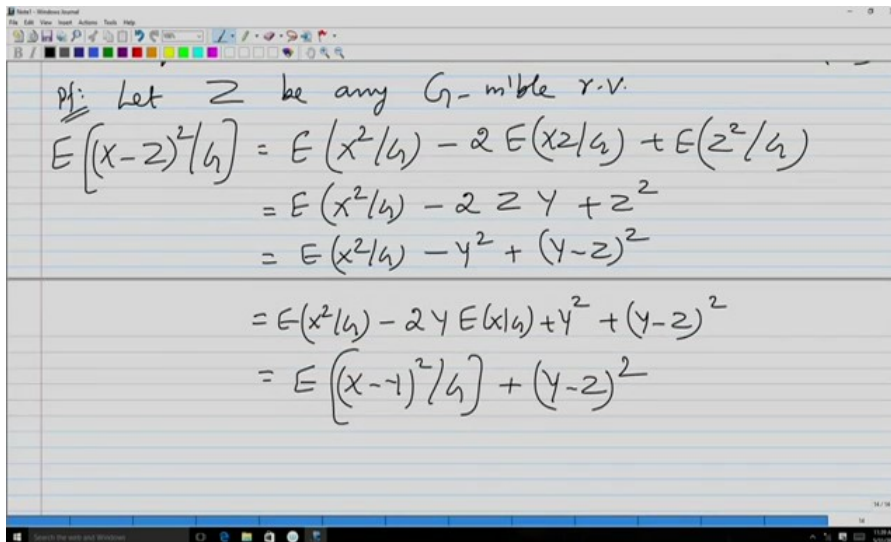 Note1 - Windows Journal
File Edit View Insert Actions Tools Help
Pf: Let Z be any G-m'ble r.v.
E[(X-Z)²/G] = E(X²/G) - 2 E(XZ/G) + E(Z²/G)
= E(X²/G) - 2 Z Y + Z²
= E(X²/G) - Y² + (Y-Z)²
= E(X²/G) - 2 Y E(X|G) + Y² + (Y-Z)²
= E[(X-Y)²/G] + (Y-Z)²
14
Search the web and Windows